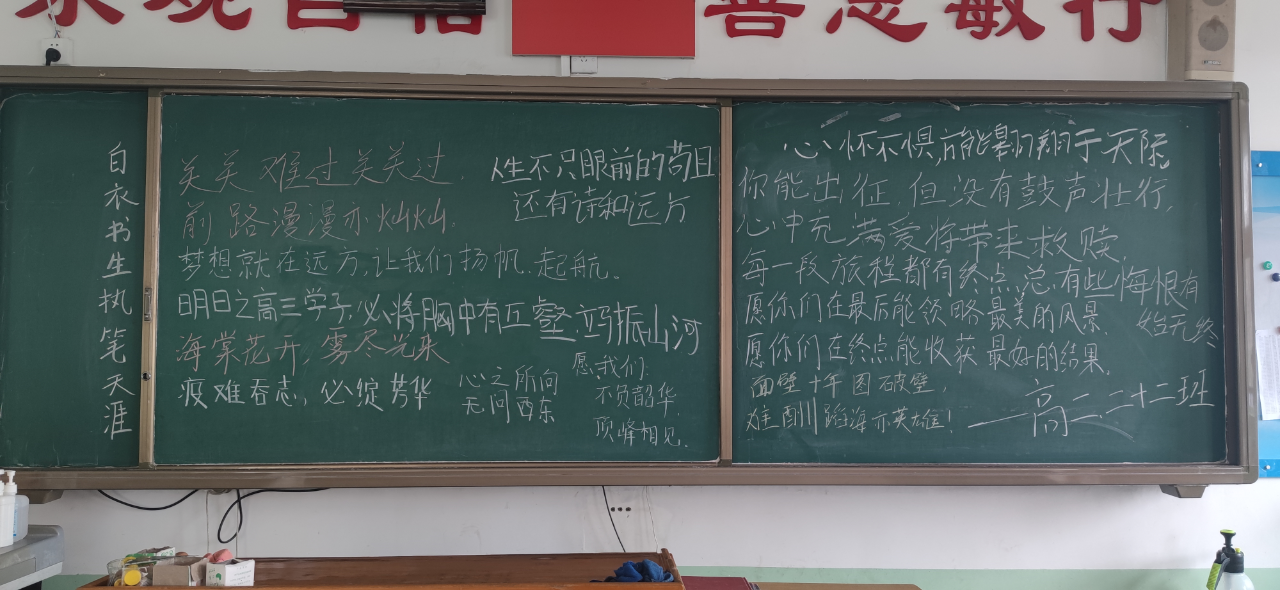 自信
善思敏行
白衣书生执笔天涯
关关难过关关过
前路漫漫亦灿灿.
人生不只眼前的苟且
还有诗和远方
梦想就在远方,让我们扬帆.起航。
明日之高三学子,必将胸中有丘壑,立马振山河
海棠花开,雾尽光来
疫难吞志,必绽芳华
心之所向
无问西东
愿我们:
不负韶华,
顶峰相见.
心怀不惧,方能翱翔于天际.
你能出征,但没有鼓声壮行,
心中充满爱将带来救赎,
每一段旅程都有终点,总有些悔恨有
始无终
愿你们在最后能领略最美的风景.
愿你们在终点能收获最好的结果.
面壁十年图破壁,
难酬蹈海亦英雄!
——高二.二十二班